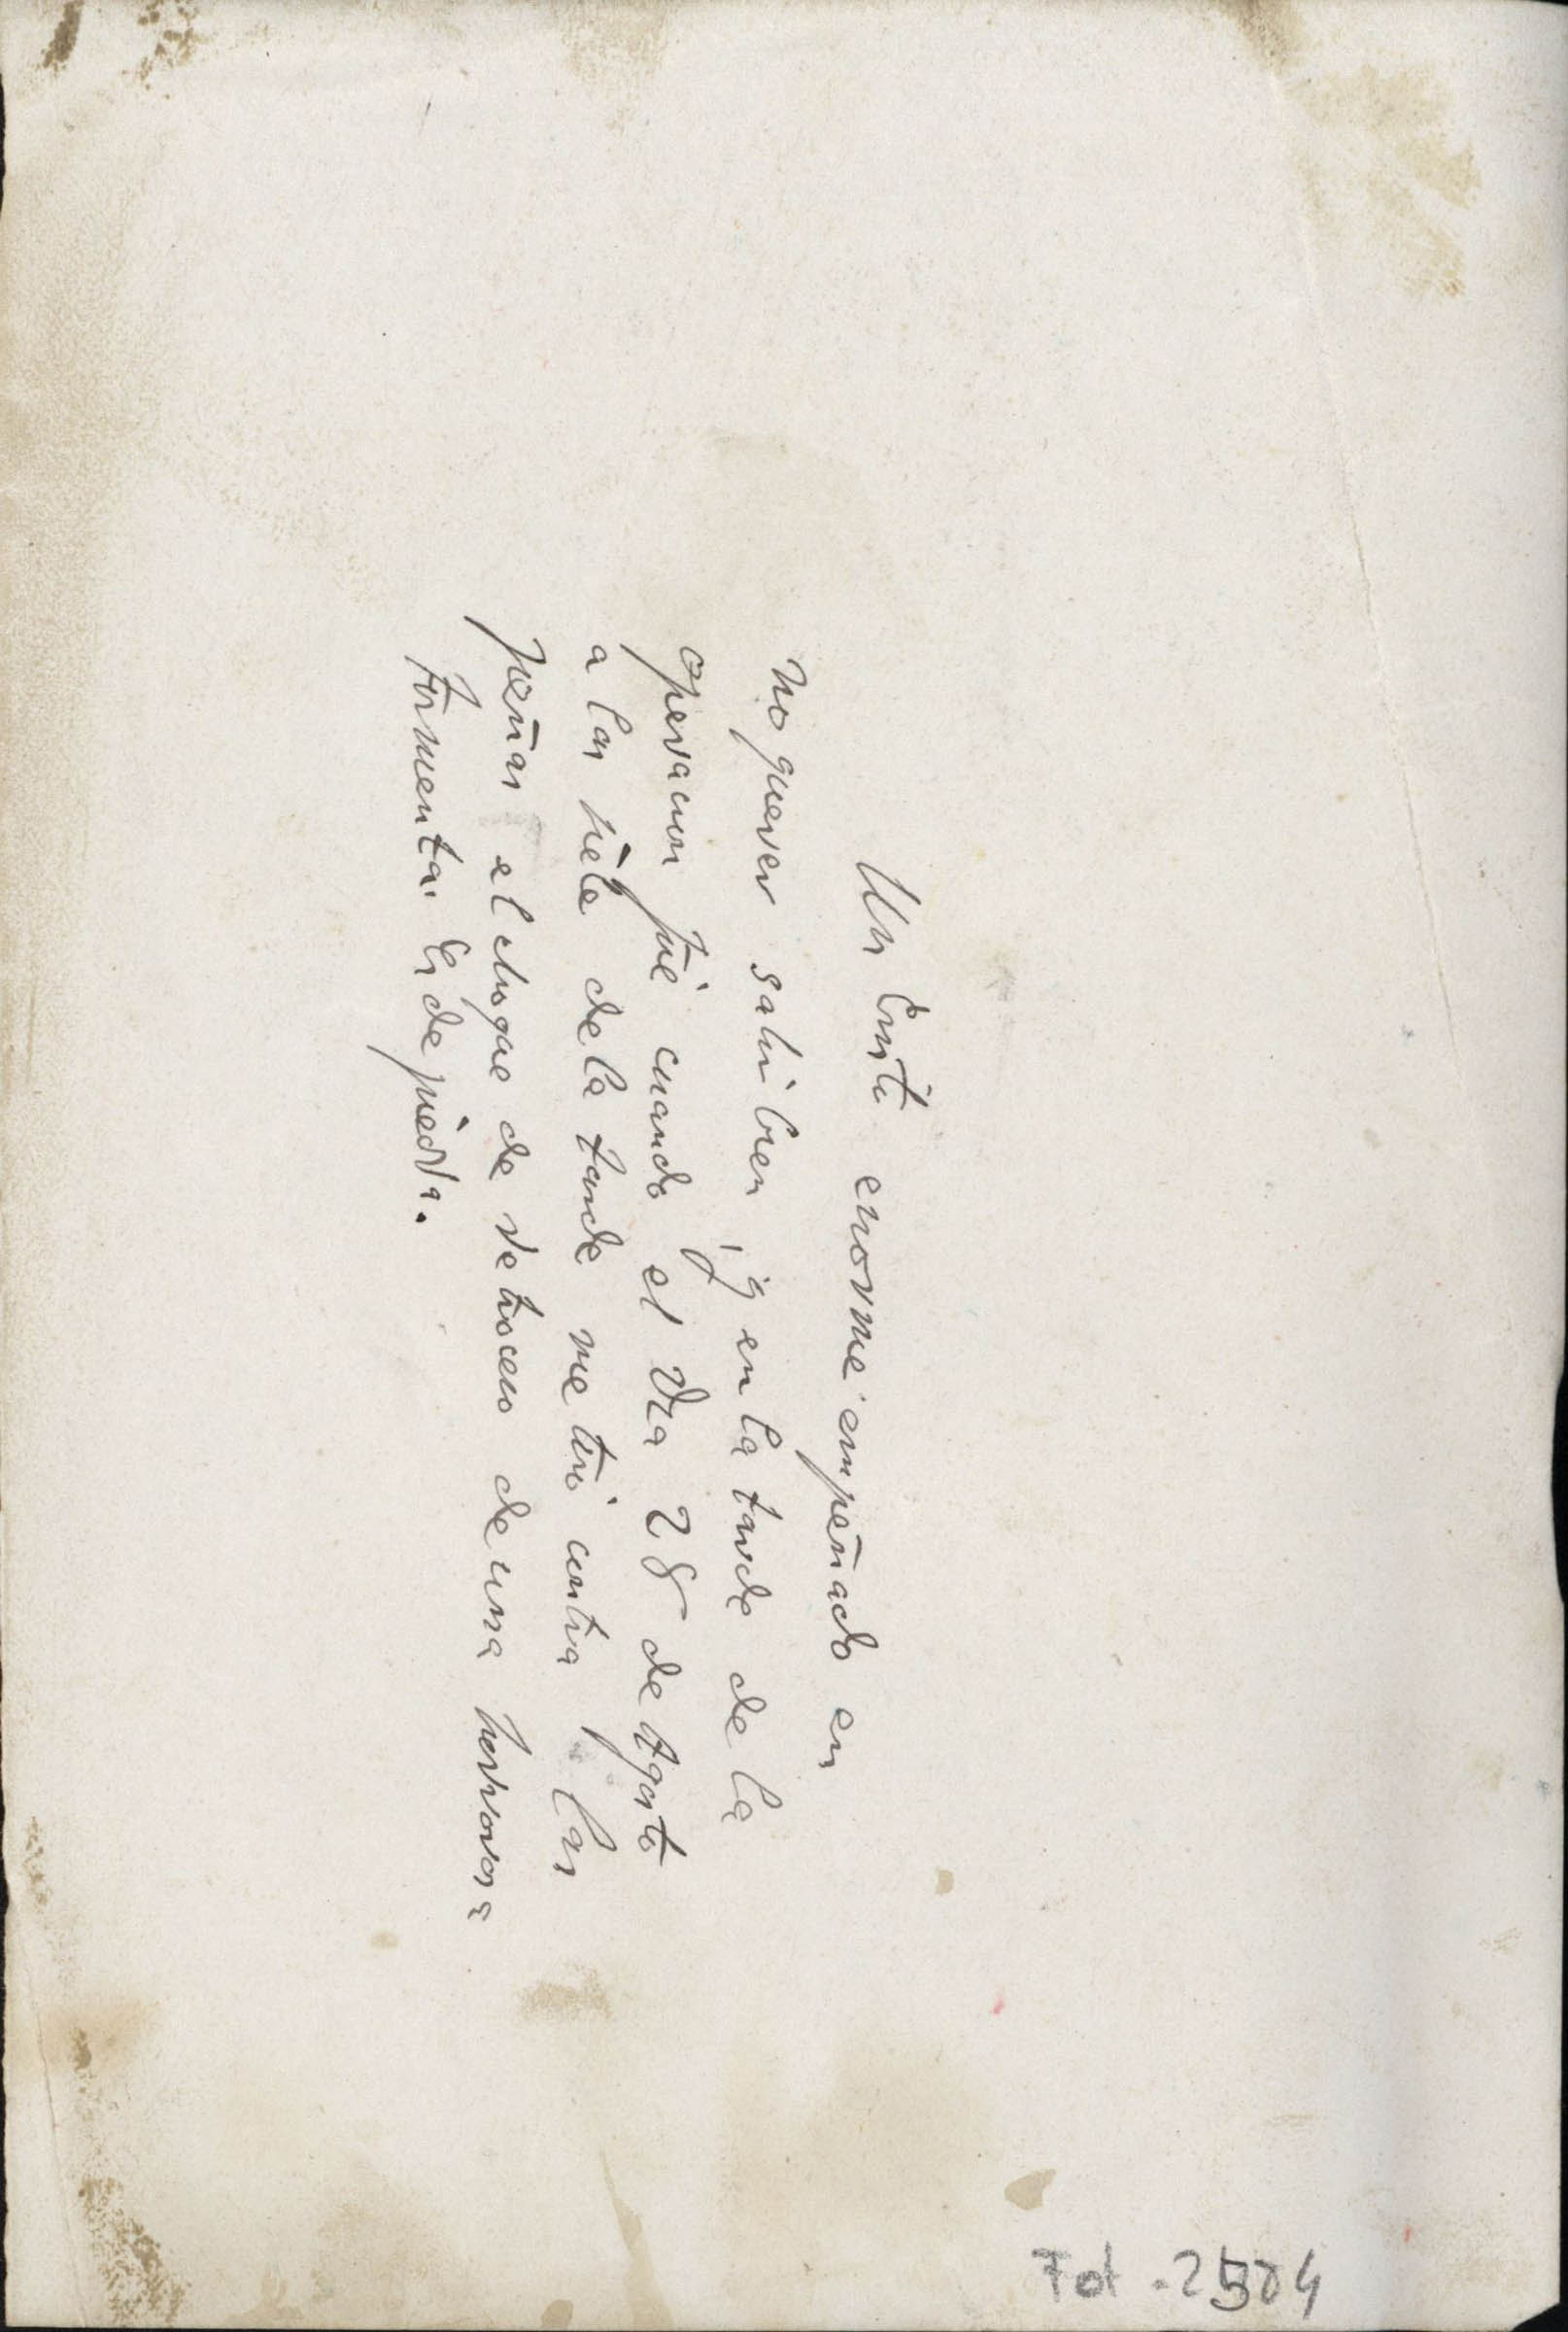 Un Cristo enorme empeñado en
no querer salir bien, y en la tarde de la
operacion fué cuando el dia 28 de Agosto
a las siete de la tarde me tiró contra las
peñas el choque de retroceso de una horrorosa
tormenta. Es de piedra.
Fot. 2504